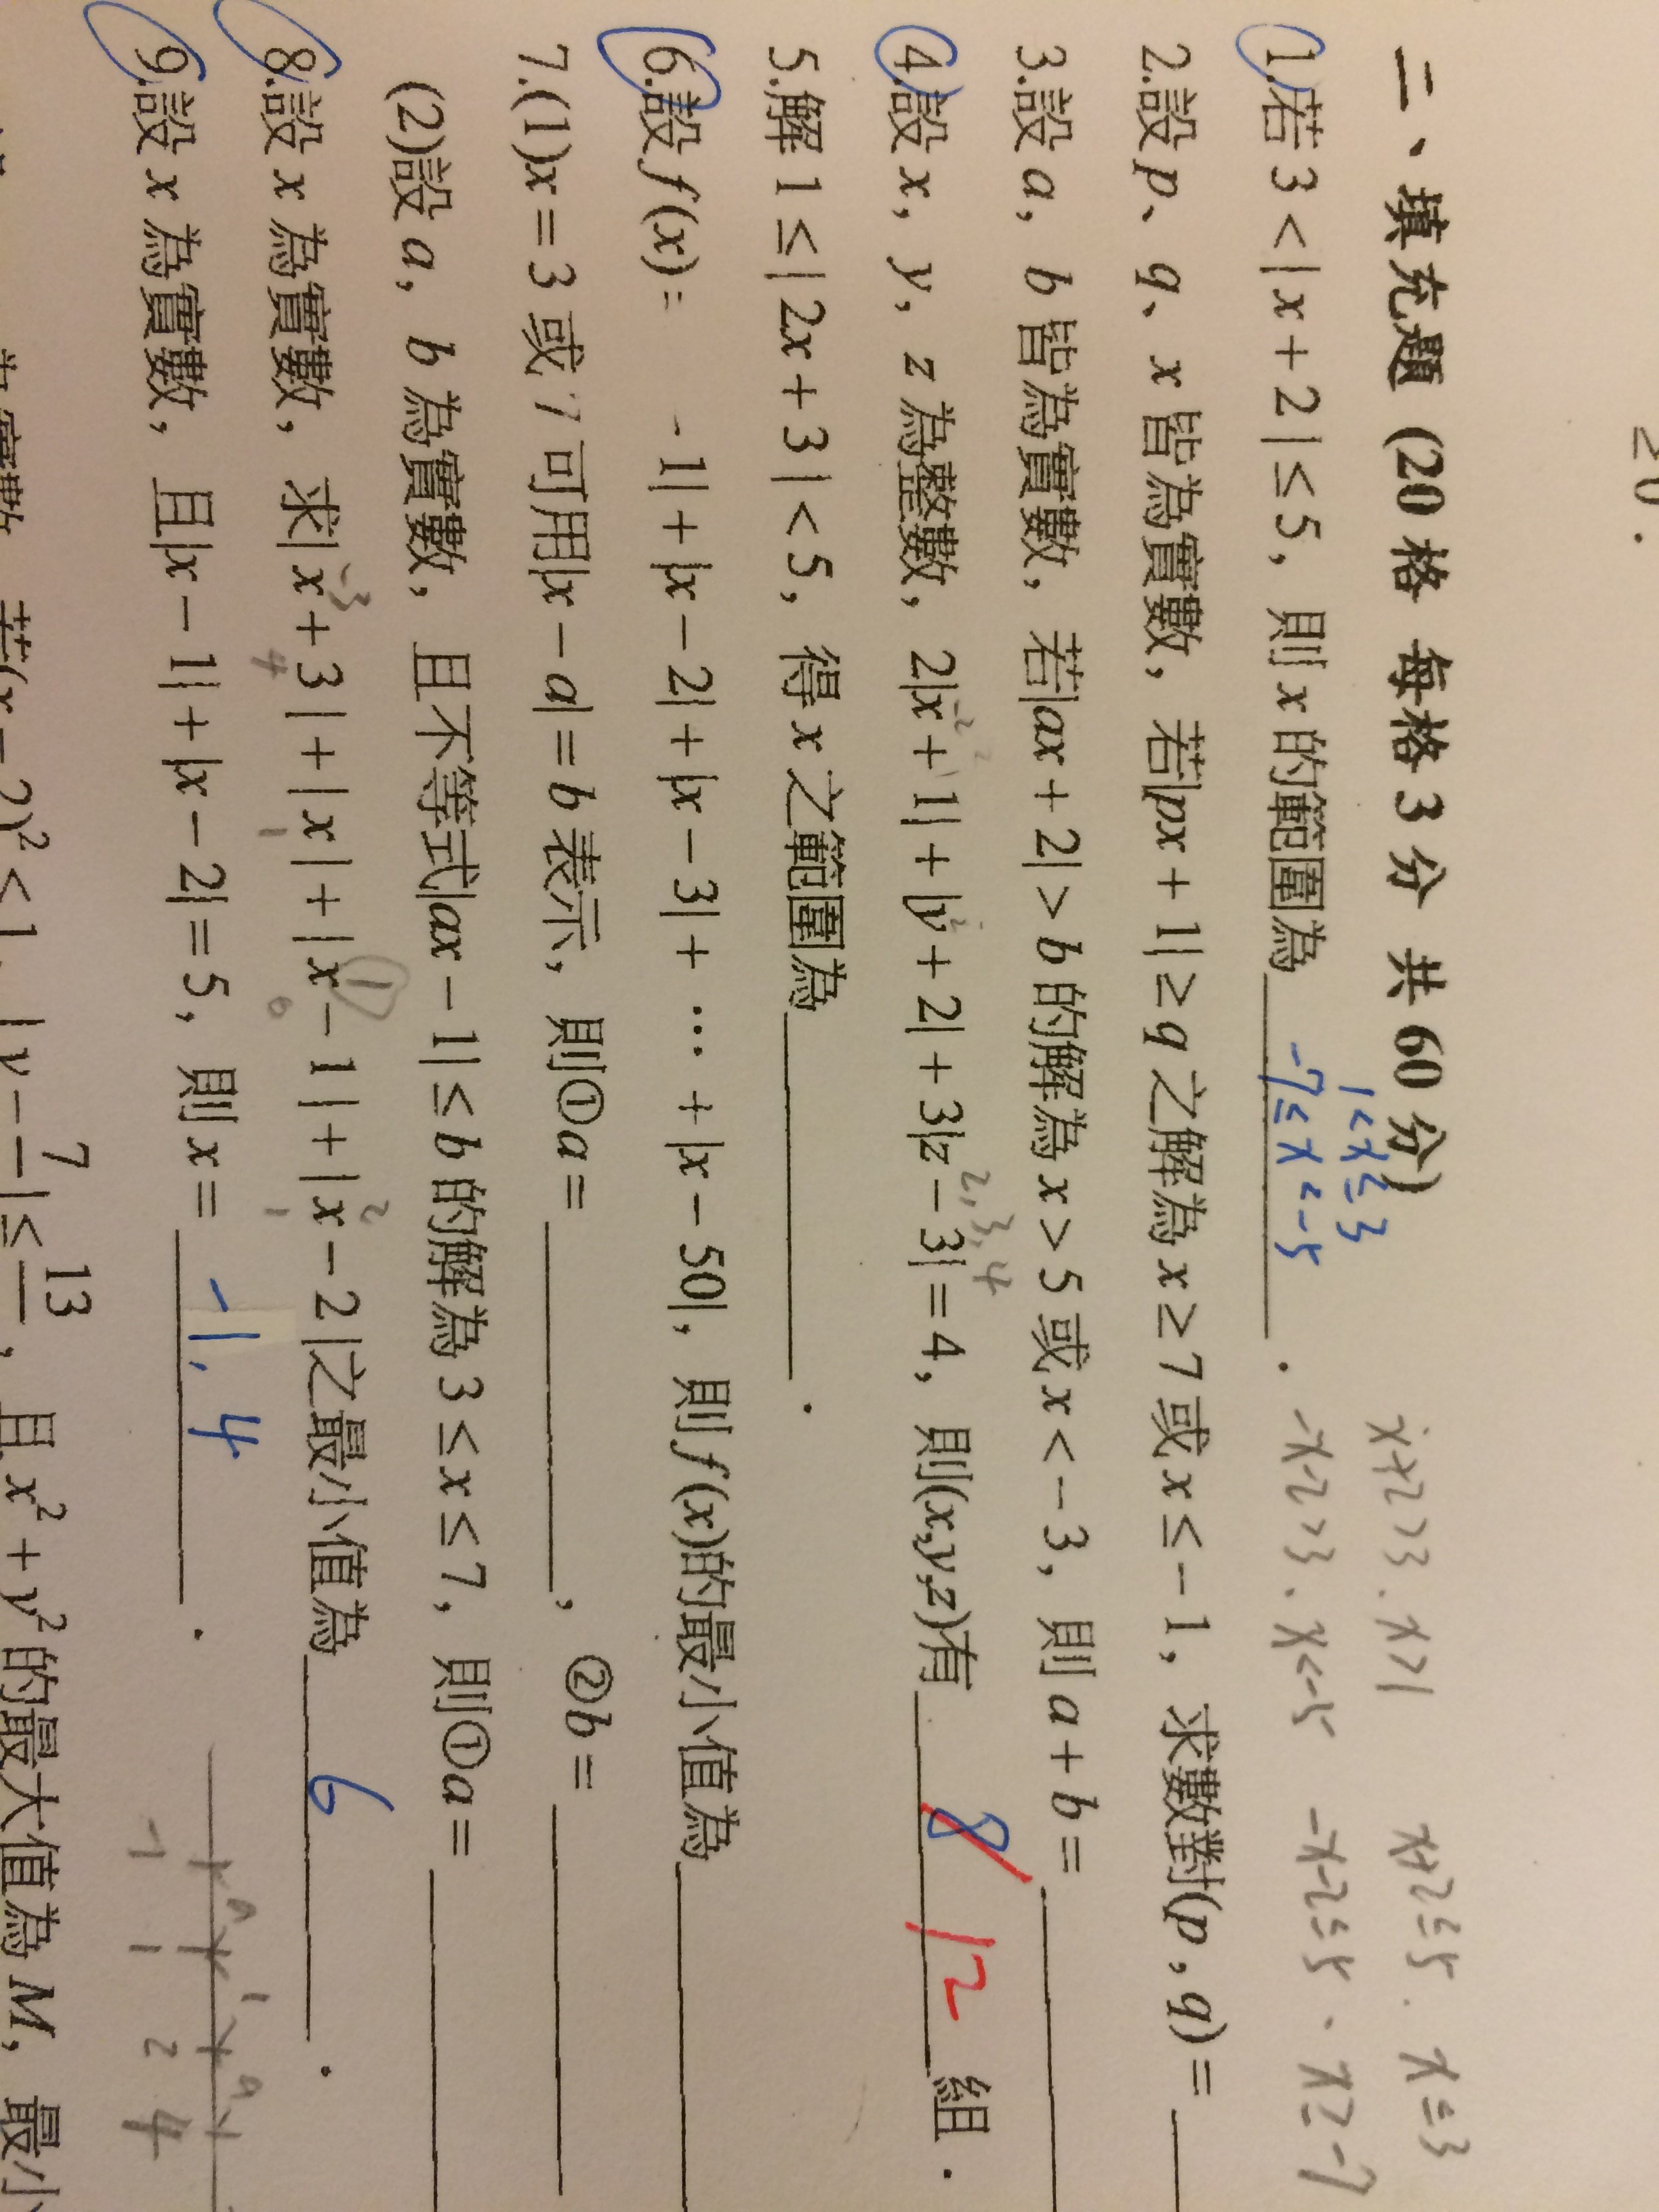 ≥0.
二、填充題 (20 格 每格 3 分 共 60 分)
1.若 3 <| x + 2 | ≤ 5, 則 x 的範圍為
1<x≤3
-7≤x<-5
.
x+2>3. x>1
-x-2>3. x<-5
x+2≤5. x≤3
-x-2≤5. x≥-7
2.設 p、q、x 皆為實數, 若|px + 1| ≥ q 之解為 x ≥ 7 或 x ≤ -1, 求數對(p , q) =
3.設 a, b 皆為實數, 若|ax + 2| > b 的解為 x > 5 或 x < -3, 則 a + b =
4.設 x, y, z 為整數, 2|x + 1| + |y + 2| + 3|z - 3| = 4, 則(x,y,z)有 8 12 組.
2,3,4
5.解 1 ≤| 2x + 3 |< 5, 得 x 之範圍為 .
6.設 f(x) = -1| + |x - 2| + |x - 3| + … + |x - 50|, 則 f(x)的最小值為
7.(1)x = 3 或 7 可用|x - a| = b 表示, 則①a = , ②b =
(2)設 a, b 為實數, 且不等式|ax - 1| ≤ b 的解為 3 ≤ x ≤ 7, 則①a =
8.設 x 為實數, 求| x + 3 | + | x | + | x - 1 | + | x - 2 |之最小值為 6 .
-3 1 2
4 1 0 1
9.設 x 為實數, 且|x - 1| + |x - 2| = 5, 則 x = -1, 4 .
-1 1 2 4
為實數, 若(x - 2)² < 1, | y - 7 | ≤ 13 , 且 x² + y² 的最大值為 M, 最小